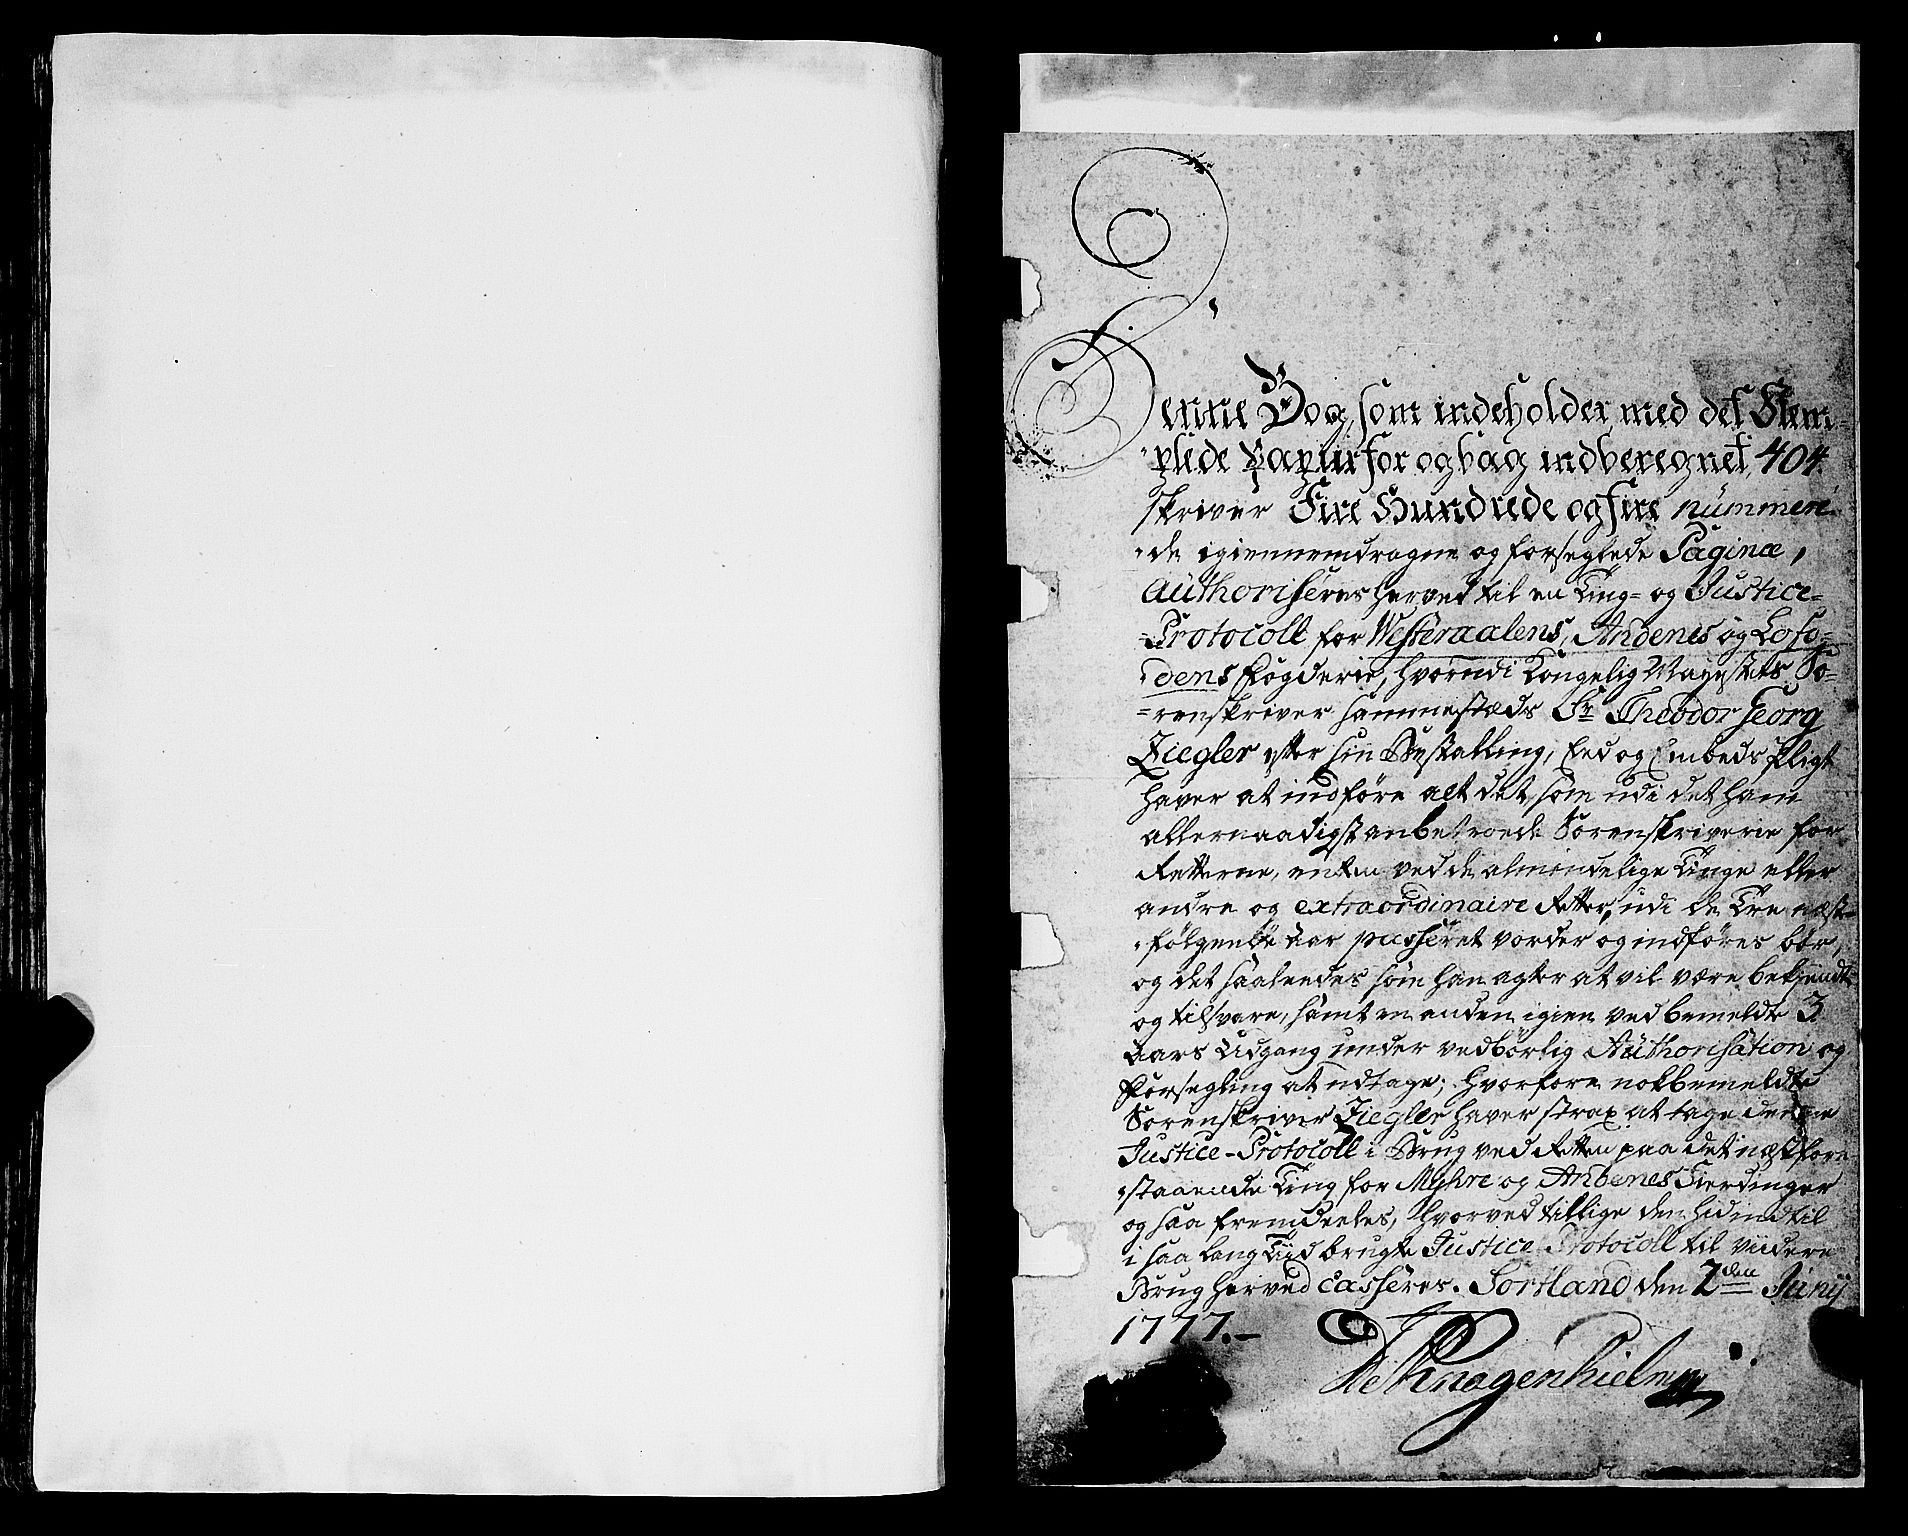 Denne Bog, som indeholder, med det Stem-
-plede Papiir for og bag indberegnet, 404.
skriver Fire Hundrede og fire nummere-
-de igiennemdragne og forseglede Paginæ,
authoriseres herved til en Ting- og Justice-
-Protocoll for Westeraalens, Andenes og Lofo-
-dens Fogderie, hvorudi Kongelig Mayestets So-
-renskriver sammestæds Sr. Theodor Georg
Ziegler efter sin Bestalling, Eed og Embeds Pligt
haver at indføre alt det, som udi det ham
allernaadigst anbetroede Sorenskriverie for
Retterne, enten ved de almindelige Tinge eller
andre og extraordinaire Retter, udi de Tre næst-
-følgende Aar passeret vorder og indføres bør,
og det saaledes som han agter at vil være bekjendt
og tilsvare, samt en anden igien ved bemeldte 3
Aars Udgang under vedbørlig Authorisation og
Forsegling at udtage; hvorfore nokbemeldte
Sorenskriver Ziegler haver strax at tage denne
Justice-Protocoll i Brug ved Retten paa det næstfore-
-staaende Ting for Myhre og Andenes Fierdinger
og saa fremdeeles, hvorved tillige den hidindtil
i saa lang Tiid brugte Justice Protocoll til viidere
Brug herved casseres. Sortland den 2den Junij
1777.-
Knagenhielm